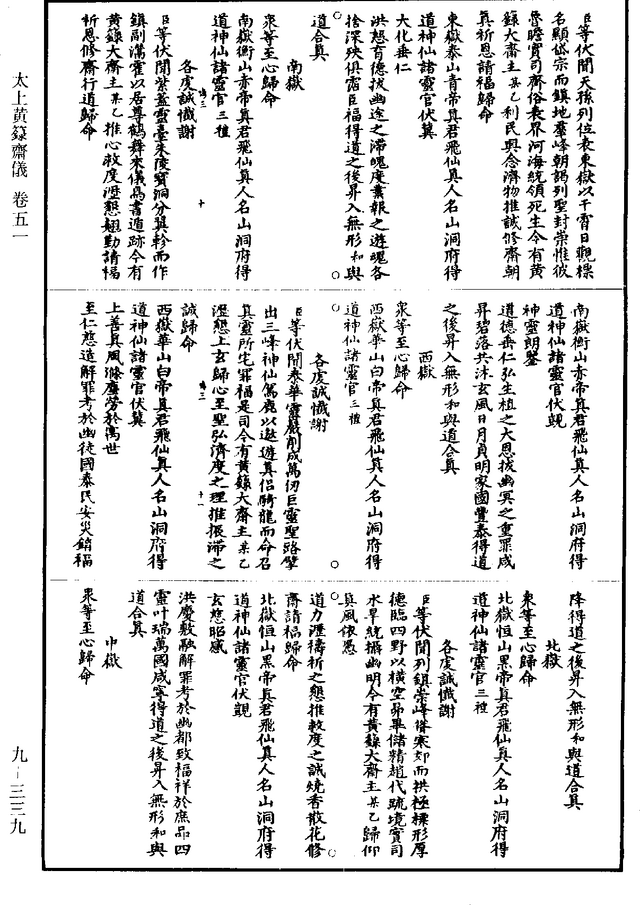 臣等伏聞天孫列位表東嶽以干霄日觀標
名顯岱宗而鎮地羣峰朝謁列聖封崇惟彼
魯瞻實司齊俗表界河海統領死生今有黃
籙大齋主某乙利民興念濟物推誠修齋朝
真祈恩請福歸命
東嶽泰山青帝真君飛仙真人名山洞府得
道神仙諸靈官伏冀
大化垂仁
洪慈育德拔幽途之滯魄度業報之遊魂各
捨深殃俱霑巨福得道之後昇入無形和與
道合真
南嶽
眾等至心歸命
南嶽衡山赤帝真君飛仙真人名山洞府得
道神仙諸靈官三禮
各虔誠懺謝
臣等伏聞紫蓋靈臺朱陵寶洞分翼軫而作
鎮副灊霍以居尊鶴舞來儀鳥書遁跡今有
黃籙大齋主某乙推心救度瀝懇翹勤請福
祈恩修齋行道歸命
南嶽衡山赤帝真君飛仙真人名山洞府得
道神仙諸靈官伏覬
神靈朗鑒
道德垂仁弘生植之大恩拔幽冥之重罪咸
昇碧落共沐玄風日月貞明家國豐泰得道
之後昇入無形和與道合真
西嶽
眾等至心歸命
西嶽華山白帝真君飛仙真人名山洞府得
道神仙諸靈官三禮
各虔誠懺謝
臣等伏聞泰華靈巖削成萬仞巨靈聖跡擘
出三峰神仙駕鹿以遨遊真侶騎龍而命召
真靈所宅罪福是司今有黃籙大齋主某乙
瀝懇上玄歸心至聖弘濟度之理推振滯之
誠歸命
西嶽華山白帝真君飛仙真人名山洞府得
道神仙諸靈官伏冀
上善真風滌塵勞於萬世
至仁慈造解罪考於幽徒國泰民安災銷福
降得道之後昇入無形和與道合真
北嶽
眾等至心歸命
北嶽恒山黑帝真君飛仙真人名山洞府得
道神仙諸靈官三禮
各虔誠懺謝
臣等伏聞列鎮崇峰偹寒郊而拱極標形厚
德臨四野以橫空昴畢儲精趙代疏境實司
水旱統攝幽明今有黃籙大齋主某乙歸仰
真風依憑
道力瀝禱祈之懇推救度之誠燒香散花修
齋請福歸命
北嶽恒山黑帝真君飛仙真人名山洞府得
道神仙諸靈官伏覬
玄慈昭感
洪慶敷融解罪考於幽都致福祥於庶品四
靈叶瑞萬國咸寧得道之後昇入無形和與
道合真
中嶽
眾等至心歸命
太上黃籙齋儀 卷五一
九－三三九